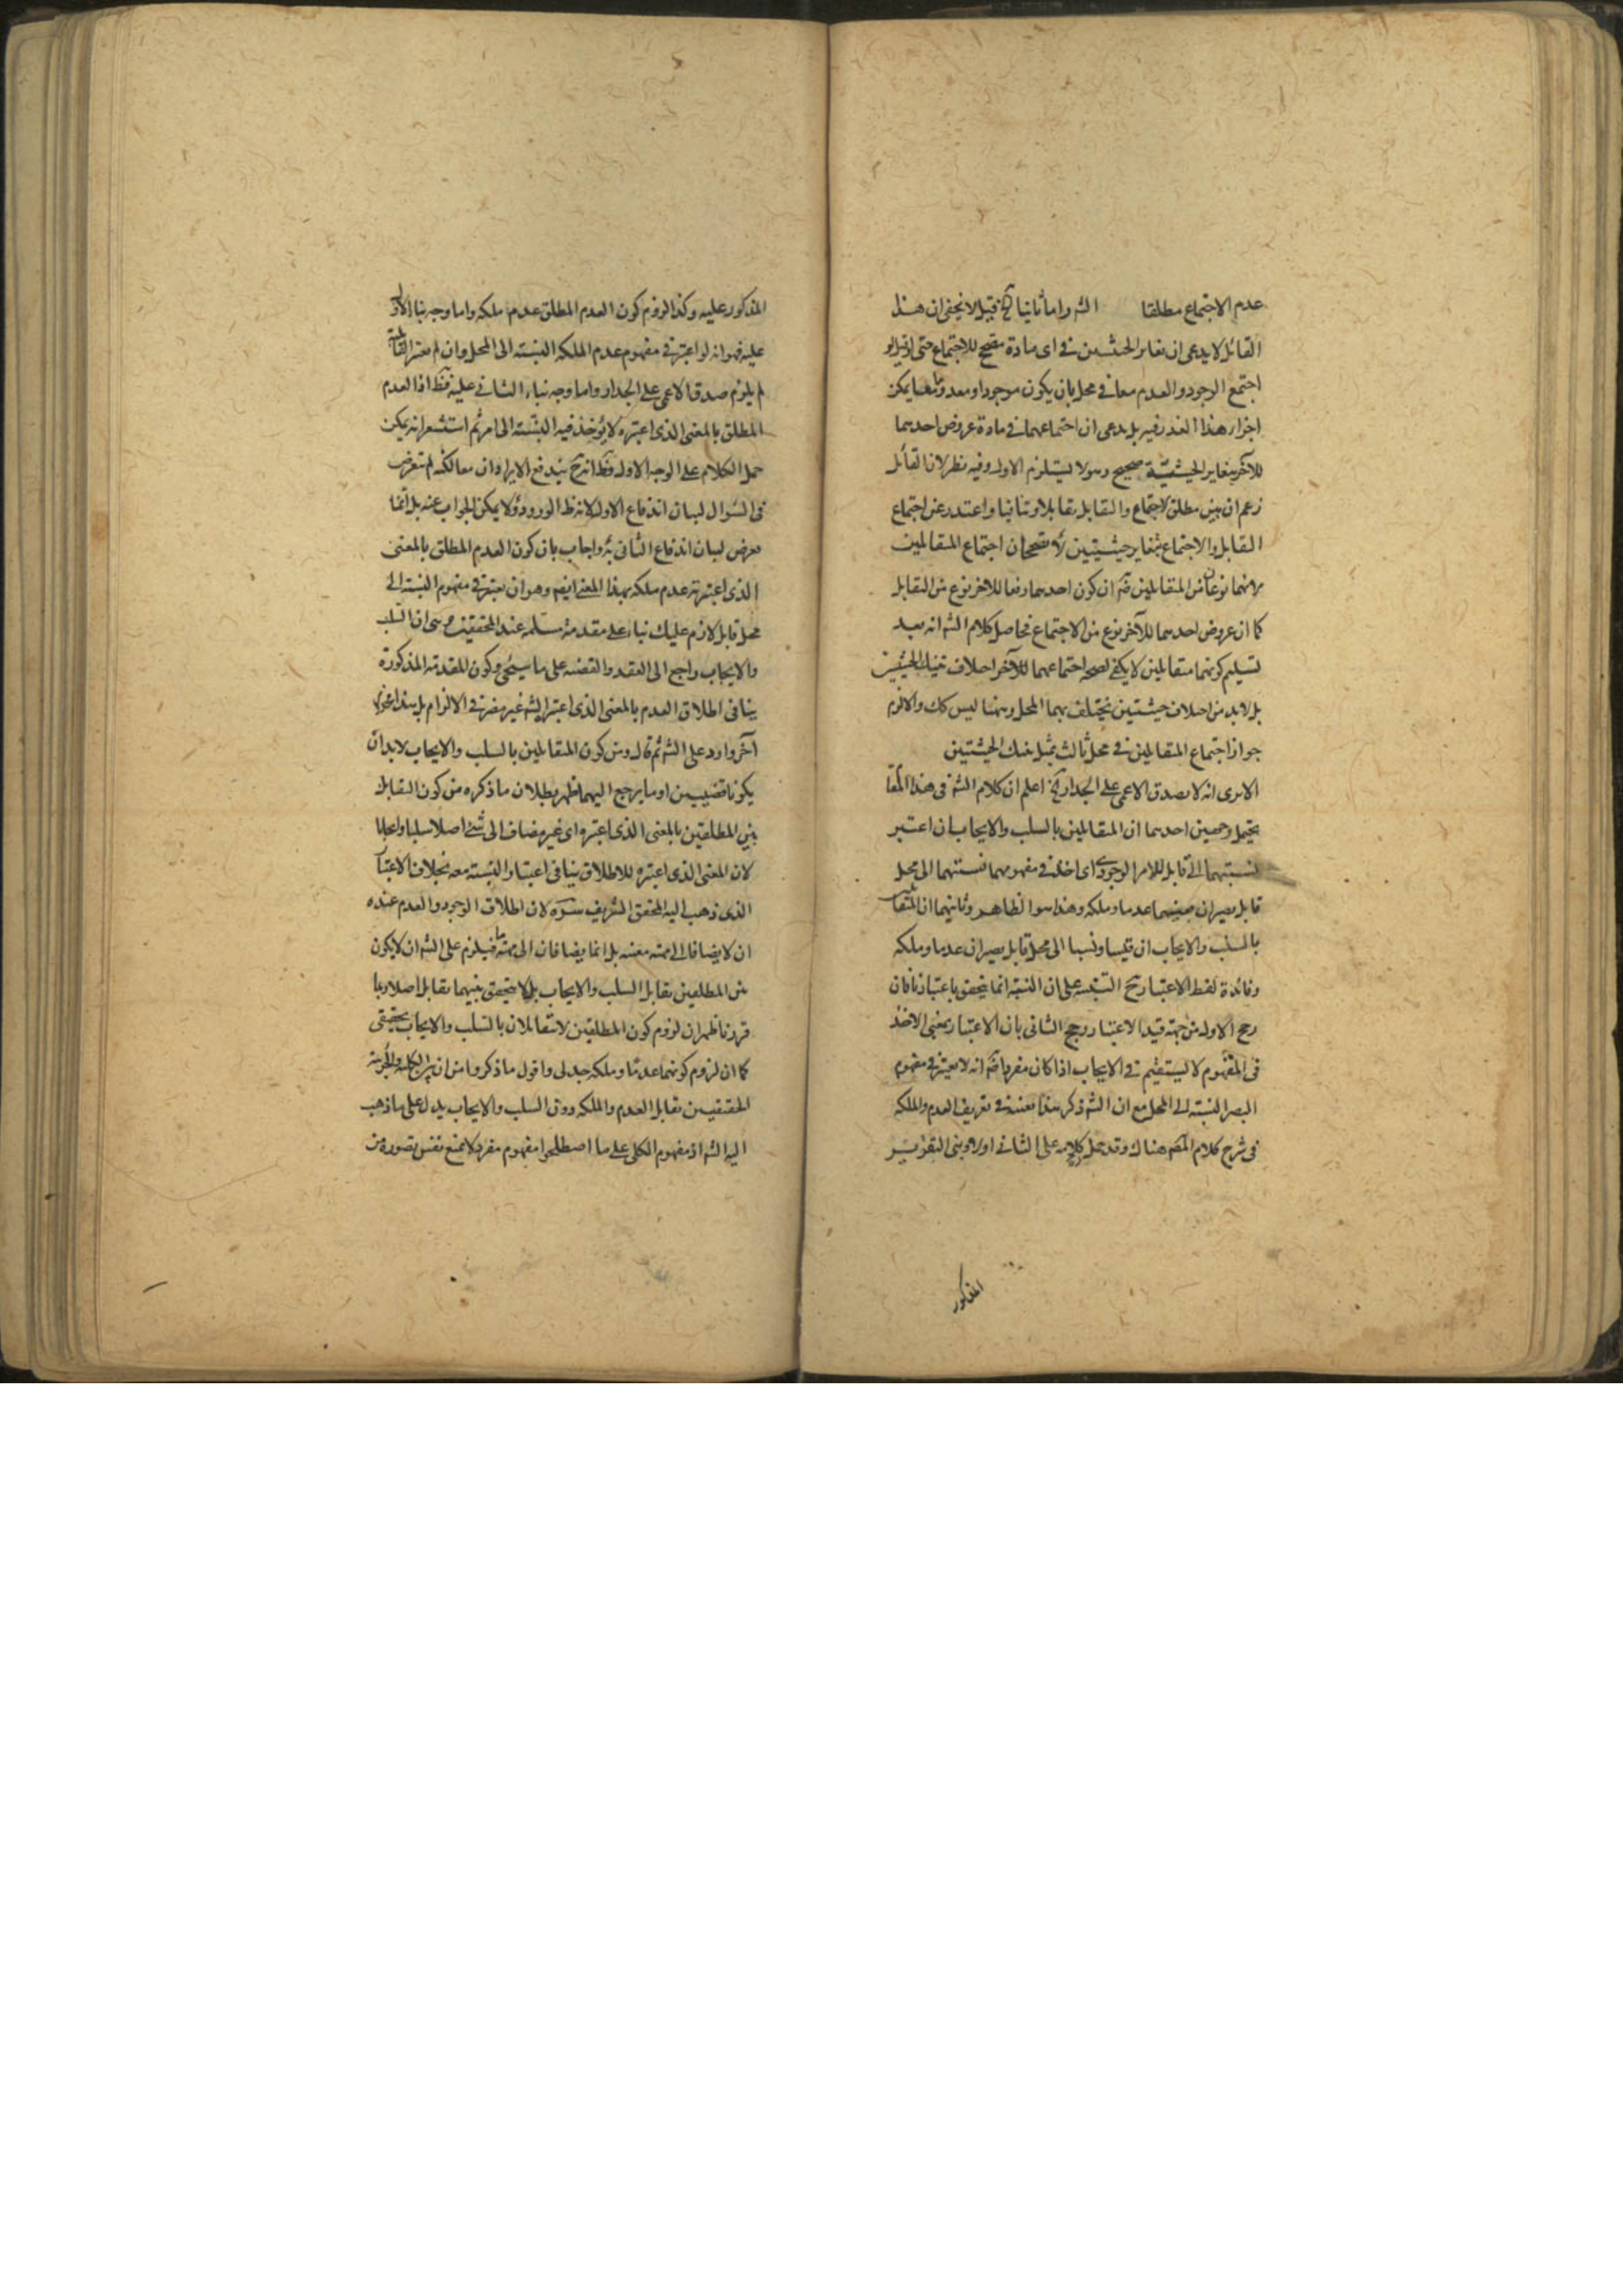 عدم الاجتماع مطلقا الشه واما ثانيا الخ قيل لا يخفى ان هذا
القائل لا يدعى ان تغاير الحيثيتين فى اى مادة مصحح للاجتماع حتى اذ قيل لو
اجتمع الوجود والعدم معا فى محل بان يكون موجودا ومعدوما معا يمكن
اجراء هذا العذر فيه بل يدعى ان اجتماعهما فى مادة عروض احدهما
للآخر بتغاير الحيثية صحيح وهو لا يستلزم الاول وفيه نظر لان القائل
زعم ان بين مطلق الاجتماع والتقابل تقابلا وتنافيا واعتذر عن اجتماع
التقابل والاجتماع بتغاير حيثيتين لا مصححان اجتماع المتقابلين
نوعا من المتقابلين ان كون احدهما رفعا للاخر نوع من التقابل
كما ان عروض احدهما للآخر نوع من الاجتماع فحاصل كلام الشه انه بعد
تسليم كونهما متقابلين لا يكفى لصحة اجتماعهما للآخر اختلاف تينك الحيثيتين
بل لابد من اختلاف حيثيتين يختلف بهما المحل وههنا ليس كك والا لزم
جواز اجتماع المتقابلين فى محل ثالث بمثل تينك الحيثيتين
الا يرى انه لا يصدق الاعمى على الجدار الخ اعلم ان كلام الشه فى هذا المقا
يحتمل وجهين احدهما ان المتقابلين بالسلب والايجاب ان اعتبر
نسبتهما الى قابل للامر الوجودى اى اخذ فى مفهومهما نسبتهما الى محل
قابل يصيران بعينهما عدما وملكه وهذا هو الظاهر وثانيهما ان المتقابلين
بالسلب والايجاب ان قيسا ونسبا الى محل قابل يصيران عدما وملكه
وفائدة لفظ الاعتبار ح التنبيه على ان النسبة انما يتحقق باعتبارنا فان
رجح الاول من جهة قيد الاعتبار رجح الثانى بان الاعتبار بمعنى الاخذ
فى المفهوم لا يستقيم فى الايجاب اذا كان مفردا انه لا يعتبر فى مفهوم
البصر النسبة الى المحل مع ان الشه ذكر هذا بعينه فى تعريف العدم والملكه
فى شرح كلام المصه هناك وقد حمل كلامه على الثانى اورد وبنى التقرير
المذكور
المذكور عليه وكذا لزوم كون العدم المطلق عدم ملكه واما وجه بناء الاول
عليه فهو انه لو اعتبر فى مفهوم عدم الملكه النسبة الى المحل وان لم يعتبر القابلية
لم يلزم صدق الاعمى على الجدار واما وجه بناء الثانى عليه فظ اذ العدم
المطلق بالمعنى الذى اعتبره لا يؤخذ فيه النسبة الى امر ثم استشعر انه يمكن
حمل الكلام على الوجه الاول وظ انه ح يندفع الايرادان معا لكنه لم يتعرض
فى السؤال لبيان اندفاع الاول لانه ظ الورود ولا يمكن الجواب عنه بل انما
تعرض لبيان اندفاع الثانى واجاب بان كون العدم المطلق بالمعنى
الذى اعتبرته عدم ملكه بهذا المعنى ايضا وهو ان يعتبر فى مفهومه النسبة الى
محل قابل لازم عليك بناء على مقدمة مسلمة عند المحققين وهى ان السلب
والايجاب راجع الى العقد والقضيه على ما سيجئ وكون المقدمة المذكورة
ينافى اطلاق العدم بالمعنى الذى اعتبر الشه غير مضر فى الالزام بل هذا
آخر وارد على الشه ثم قال ومن كون المتقابلين بالسلب والايجاب لابد ان
يكونا قضيتين او ما يرجع اليهما ظهر بطلان ما ذكره من كون التقابل
بين المطلقين بالمعنى الذى اعتبره اى غير مضاف الى شئ اصلا سلبا وايجابا
لان المعنى الذى اعتبره للاطلاق ينافى اعتبار النسبة معه بخلاف الاعتبار
الذى ذهب اليه المحقق الشريف لان اطلاق الوجود والعدم عنده
ان لا يضافا الى مهية معينه بل انما يضافان الى مهية ما فيلزم على الشه ان لا يكون
بين المطلقين تقابل السلب والايجاب بل لا يتحقق بينهما تقابل اصلا وبما
قررنا ظهر ان لزوم كون المطلقين لا متقابلان بالسلب والايجاب تحقيقى
كما ان لزوم كونهما عدما وملكه جدلى واقول ما ذكروا من ان بين الكلية والجزئية
الحقيقيين تقابل العدم والملكه دون السلب والايجاب يدل على ما ذهب
اليه الشه اذ مفهوم الكلى على ما اصطلحوا مفهوم مفرد لا يمنع نفس تصوره من